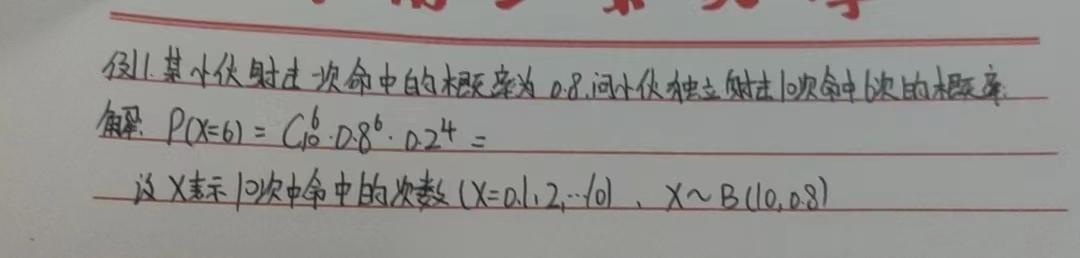 例1.某小伙射击一次命中的概率为0.8.问小伙独立射击10次命中6次的概率.
解: P(X=6) = C₁₀⁶·0.8⁶·0.2⁴ =
设X表示10次中命中的次数(X=0,1,2,…10)、X~B(10,0.8)